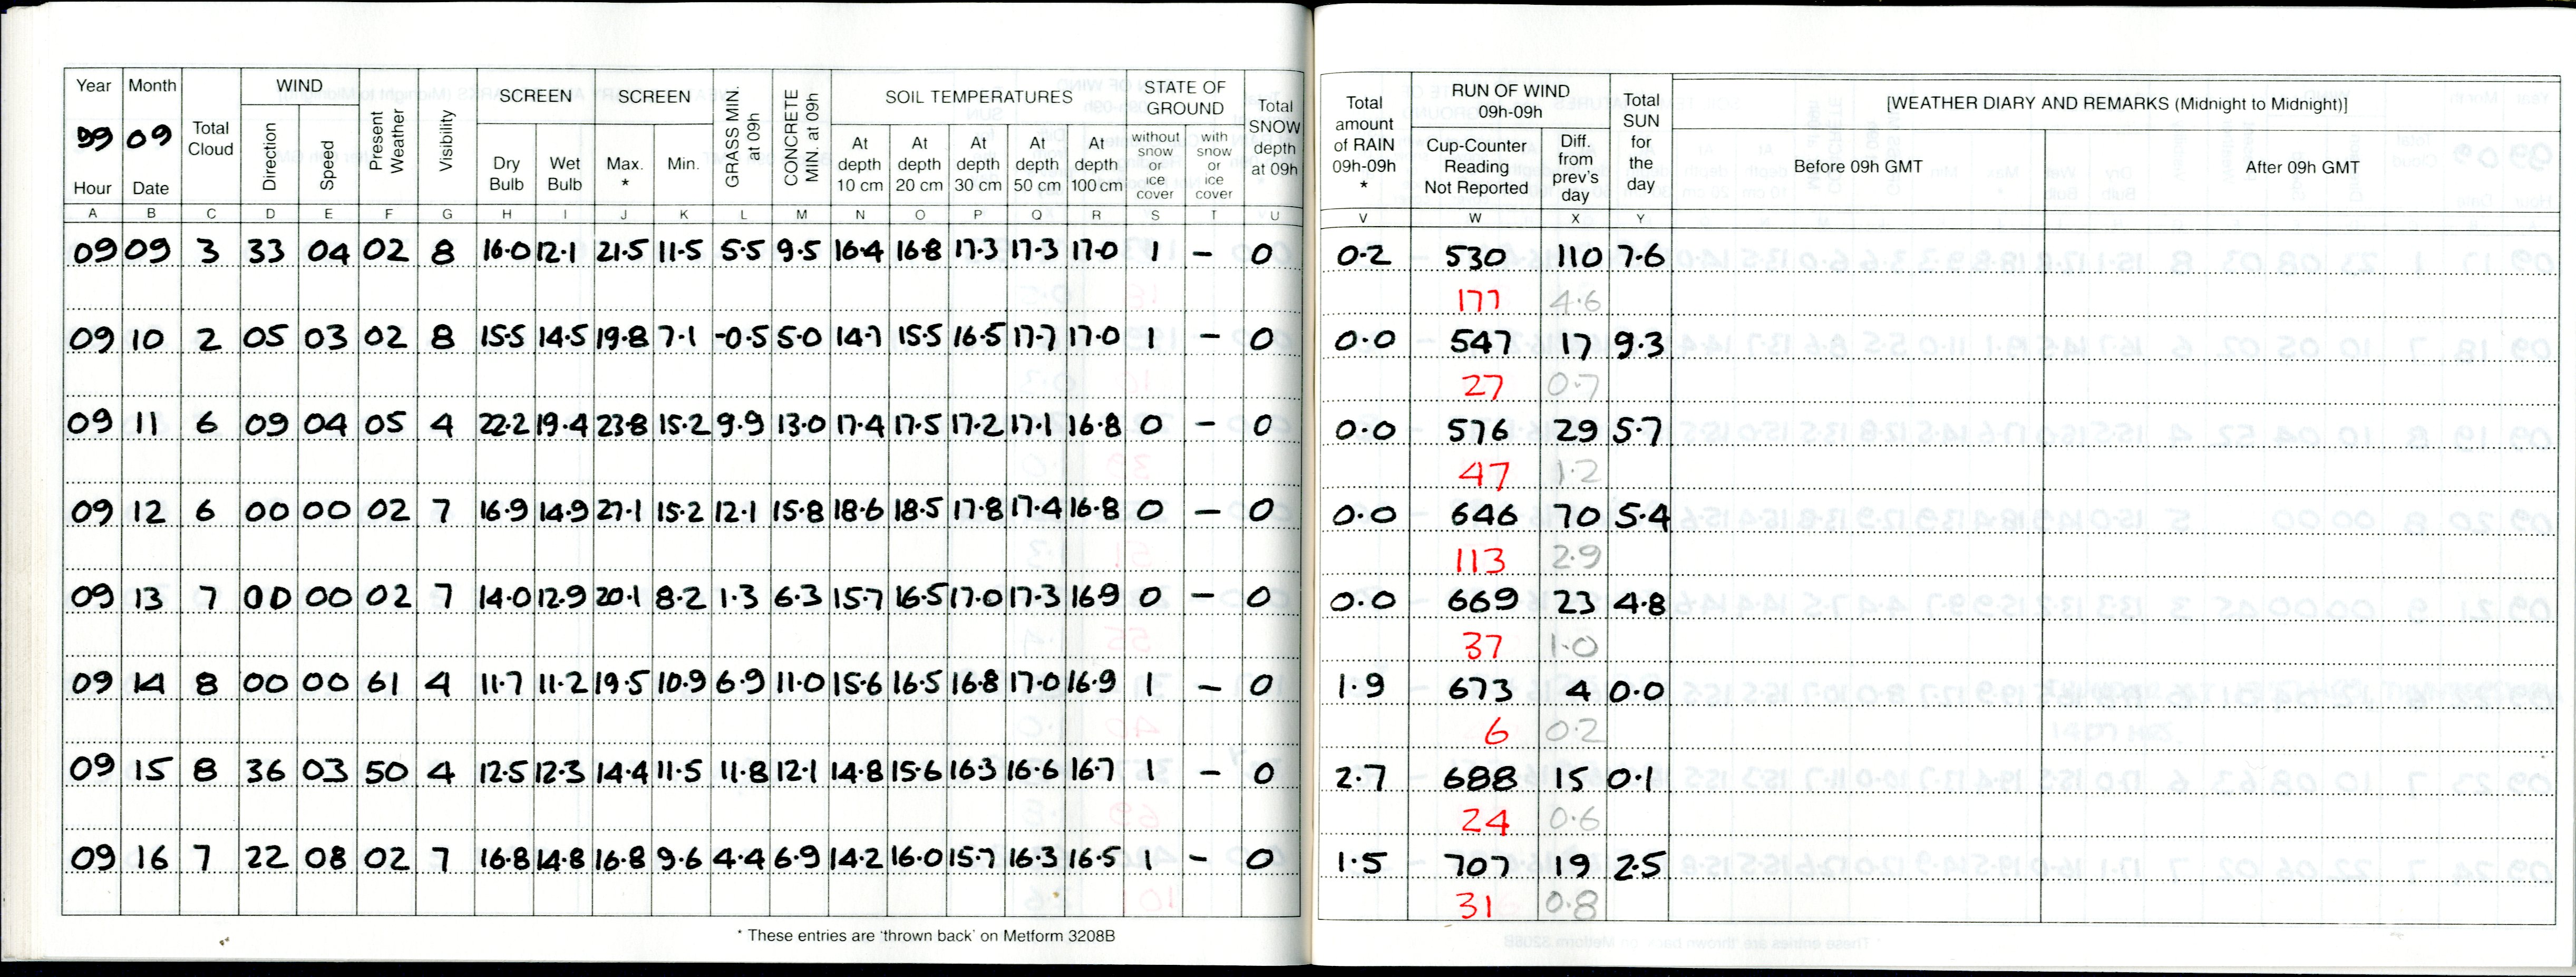 Year Month Total Cloud WIND Direction Speed Present Weather Visibility SCREEN Dry Bulb Wet Bulb SCREEN Max. * Min. GRASS MIN. at 09h CONCRETE MIN. at 09h SOIL TEMPERATURES At depth 10 cm At depth 20 cm At depth 30 cm At depth 50 cm At depth 100 cm STATE OF GROUND without snow or ice cover with snow or ice cover Total SNOW depth at 09h Total amount of RAIN 09h-09h * RUN OF WIND 09h-09h Cup-Counter Reading Not Reported Diff. from prev's day Total SUN for the day [WEATHER DIARY AND REMARKS (Midnight to Midnight)] Before 09h GMT After 09h GMT
99 09
Hour Date
A B C D E F G H I J K L M N O P Q R S T U V W X Y
09 09 3 33 04 02 8 16.0 12.1 21.5 11.5 5.5 9.5 16.4 16.8 17.3 17.3 17.0 1 – 0 0.2 530 110 7.6
177 4.6
09 10 2 05 03 02 8 15.5 14.5 19.8 7.1 -0.5 5.0 14.7 15.5 16.5 17.7 17.0 1 – 0 0.0 547 17 9.3
27 0.7
09 11 6 09 04 05 4 22.2 19.4 23.8 15.2 9.9 13.0 17.4 17.5 17.2 17.1 16.8 0 – 0 0.0 576 29 5.7
47 1.2
09 12 6 00 00 02 7 16.9 14.9 27.1 15.2 12.1 15.8 18.6 18.5 17.8 17.4 16.8 0 – 0 0.0 646 70 5.4
113 2.9
09 13 7 00 00 02 7 14.0 12.9 20.1 8.2 1.3 6.3 15.7 16.5 17.0 17.3 16.9 0 – 0 0.0 669 23 4.8
37 1.0
09 14 8 00 00 61 4 11.7 11.2 19.5 10.9 6.9 11.0 15.6 16.5 16.8 17.0 16.9 1 – 0 1.9 673 4 0.0
6 0.2
09 15 8 36 03 50 4 12.5 12.3 14.4 11.5 11.8 12.1 14.8 15.6 16.3 16.6 16.7 1 – 0 2.7 688 15 0.1
24 0.6
09 16 7 22 08 02 7 16.8 14.8 16.8 9.6 4.4 6.9 14.2 16.0 15.7 16.3 16.5 1 – 0 1.5 707 19 2.5
31 0.8
* These entries are 'thrown back' on Metform 3208B